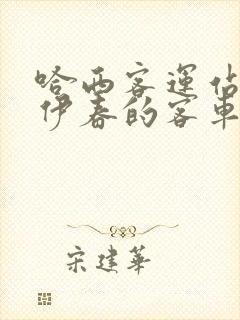 哈西客運佔
伊春的客車
宋建華